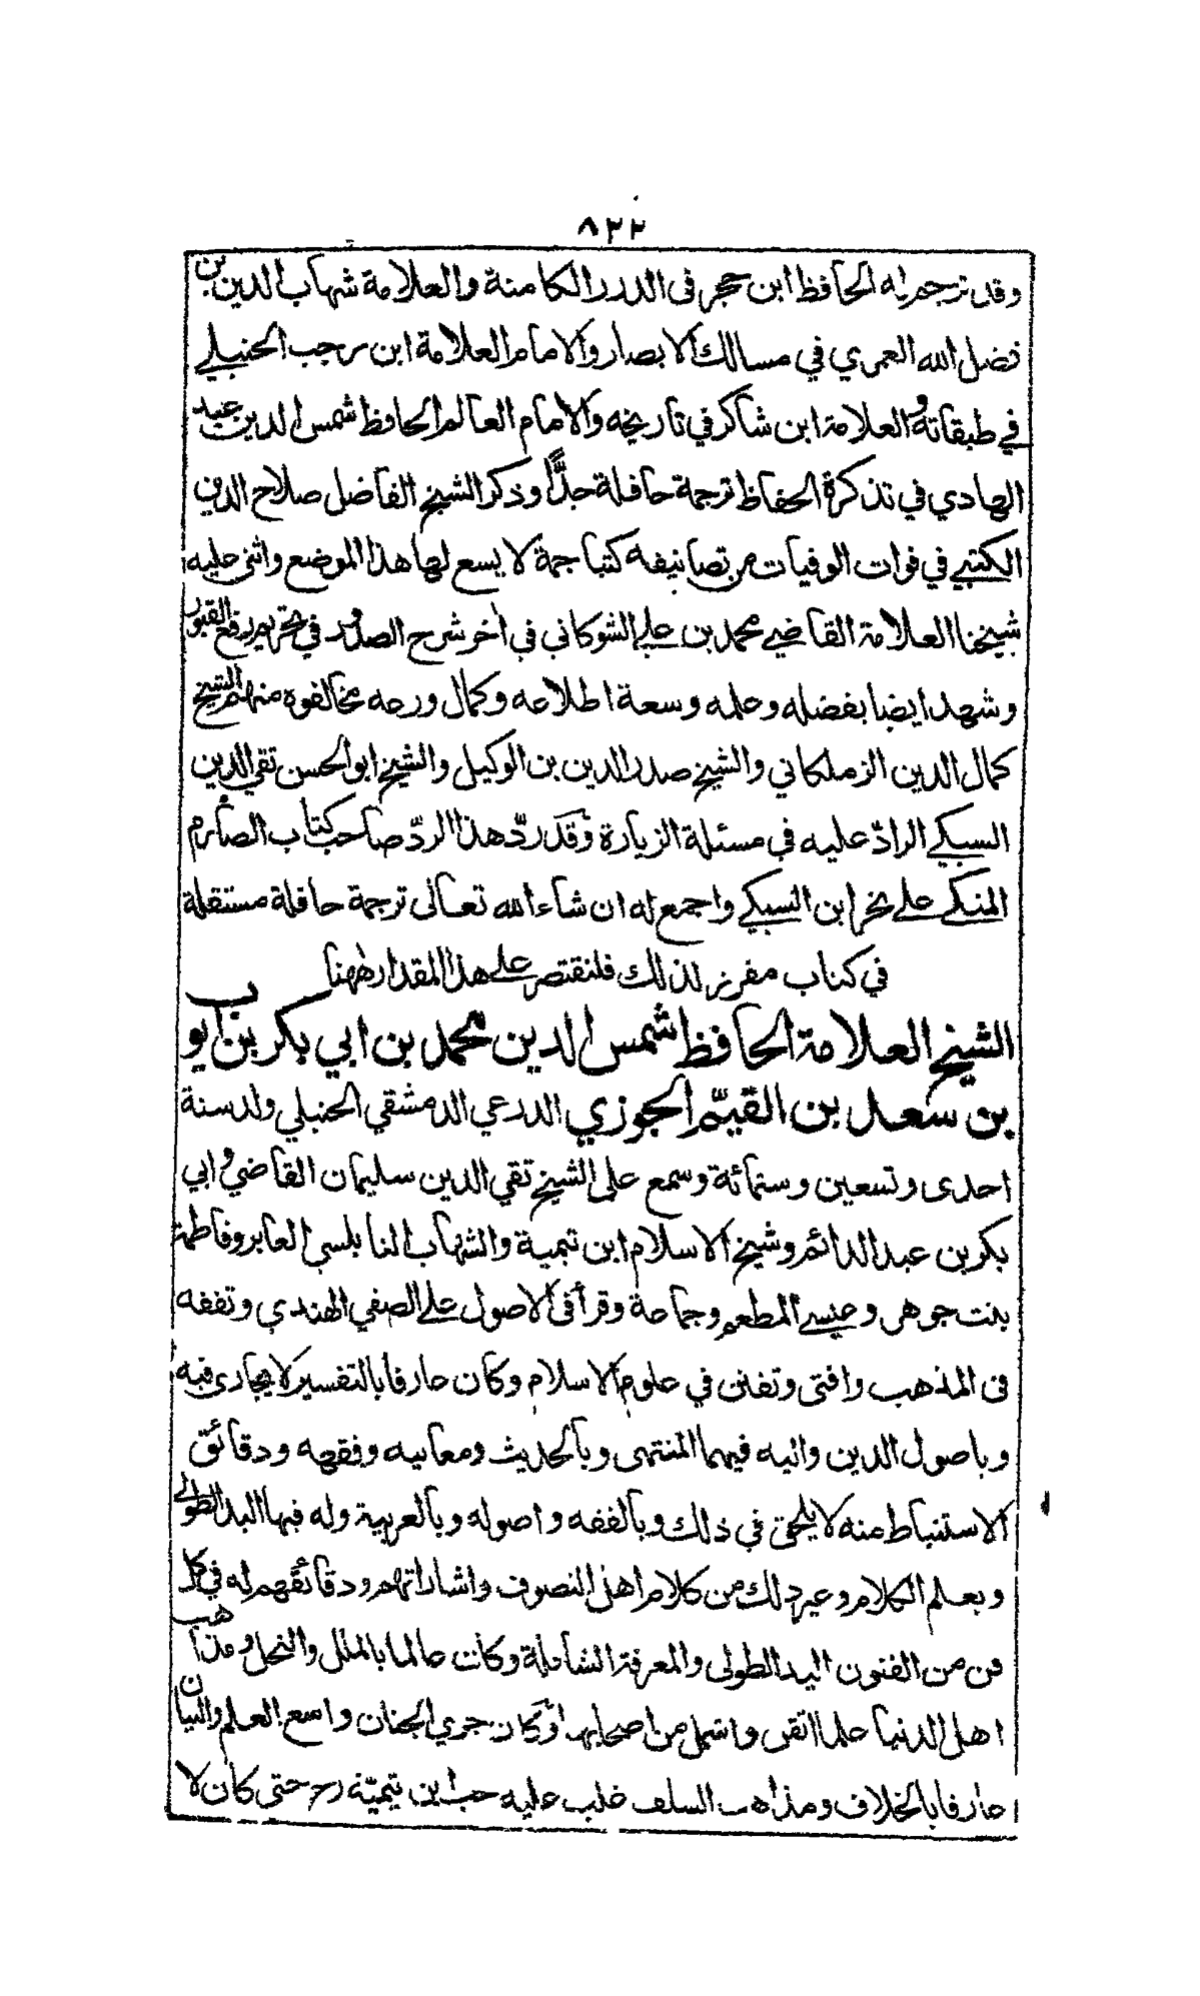 ٨٢٢
وقد ترجم له الحافظ ابن حجر فى الدرر الكامنة والعلامة شهاب الدين بن
فضل الله العمري في مسالك الابصار والامام العلامة ابن رجب الحنبلي
في طبقاته والعلامة ابن شاكر في تاريخه والامام العالم الحافظ شمس الدين عبد
الهادي في تذكرة الحفاظ ترجمة حافلة جدًّا وذكر الشيخ الفاضل صلاح الدين
الكتبي في فوات الوفيات من تصانيفه كتبا جمة لا يسع لها هذا الموضع واثنى عليه
شيخنا العلامة القاضي محمد بن علي الشوكاني في اخر شرح الصدور في تحريم رفع القبور
وشهد ايضا بفضله وعلمه وسعة اطلاعه وكمال ورعه مخالفوه منهم الشيخ
كمال الدين الزملكاني والشيخ صدر الدين بن الوكيل والشيخ ابو الحسن تقي الدين
السبكي الرادّ عليه في مسئلة الزيارة وقد ردّ هذا الردّ صاحب كتاب الصارم
المنكي على نحر ابن السبكي واجمع له ان شاء الله تعالى ترجمة حافلة مستقلة
في كتاب مفرز لذلك فلنقتصر على هذا المقدار ههنا
الشيخ العلامة الحافظ شمس الدين محمد بن ابي بكر بن ايوب
بن سعد بن القيّم الجوزي الدرعي الدمشقي الحنبلي ولد سنة
احدى وتسعين وستمائة وسمع على الشيخ تقي الدين سليمان القاضي وابي
بكر بن عبد الدائم وشيخ الاسلام ابن تيمية والشهاب النابلسى العابر وفاطمة
بنت جوهر وعيسى المطعم وجماعة وقرأ فى الاصول على الصفي الهندي وتفقه
فى المذهب وافتى وتفنن في علوم الاسلام وكان عارفا بالتفسير لا يجارى فيه
وباصول الدين واليه فيهما المنتهى وبالحديث ومعانيه وفقهه ودقائق
الاستنباط منه لا يلحق في ذلك وبالفقه واصوله وبالعربية وله فيها اليد الطولى
وبعلم الكلام وغير ذلك من كلام اهل التصوف واشاراتهم ودقائقهم له في كل
فن من الفنون اليد الطولى والمعرفة الشاملة وكان عالما بالملل والنحل ومذاهب
اهل الدنيا علما اتقن واشمل من اصحابها وكان جري الجنان واسع العلم والبيان
عارفا بالخلاف ومذاهب السلف غلب عليه حب ابن تيميّة رح حتى كان لا